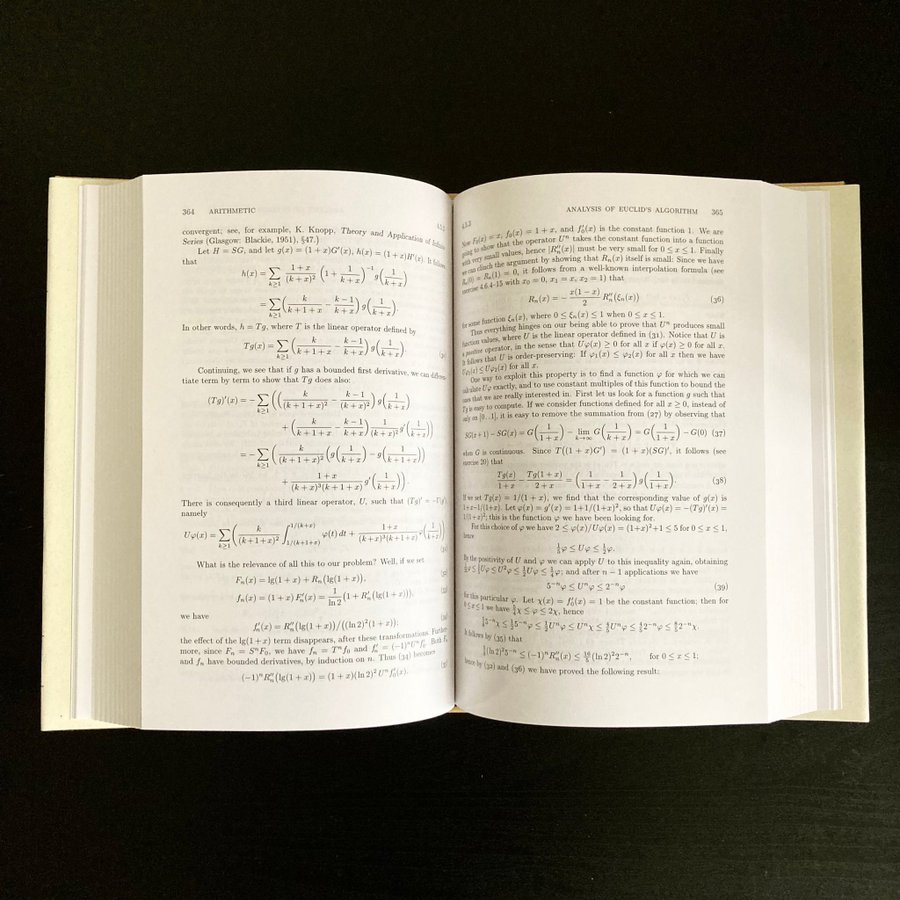 364 ARITHMETIC 4.5.3
convergent; see, for example, K. Knopp, Theory and Application of Infinite
Series (Glasgow: Blackie, 1951), §47.)
Let H = SG, and let g(x) = (1+x)G′(x), h(x) = (1+x)H′(x). It follows
that
h(x) = ∑_{k≥1} (1+x)/(k+x)² (1 + 1/(k+x))⁻¹ g(1/(k+x))
= ∑_{k≥1} (k/(k+1+x) − (k−1)/(k+x)) g(1/(k+x)).
In other words, h = Tg, where T is the linear operator defined by
Tg(x) = ∑_{k≥1} (k/(k+1+x) − (k−1)/(k+x)) g(1/(k+x)).
Continuing, we see that if g has a bounded first derivative, we can differen-
tiate term by term to show that Tg does also:
(Tg)′(x) = −∑_{k≥1} ((k/(k+1+x)² − (k−1)/(k+x)²) g(1/(k+x))
+ (k/(k+1+x) − (k−1)/(k+x)) 1/(k+x)² g′(1/(k+x)))
= −∑_{k≥1} (k/(k+1+x)² (g(1/(k+x)) − g(1/(k+1+x)))
+ (1+x)/((k+x)³(k+1+x)) g′(1/(k+x))).
There is consequently a third linear operator, U, such that (Tg)′ = −U(g′),
namely
Uφ(x) = ∑_{k≥1} (k/(k+1+x)² ∫_{1/(k+1+x)}^{1/(k+x)} φ(t) dt + (1+x)/((k+x)³(k+1+x)) φ(1/(k+x))).
What is the relevance of all this to our problem? Well, if we set
Fₙ(x) = lg(1+x) + Rₙ(lg(1+x)),
fₙ(x) = (1+x) F′ₙ(x) = 1/ln 2 (1 + R′ₙ(lg(1+x))),
we have
f′ₙ(x) = R″ₙ(lg(1+x))/((ln 2)²(1+x));
the effect of the lg(1+x) term disappears, after these transformations. Further-
more, since Fₙ = SⁿF₀, we have fₙ = Tⁿf₀ and f′ₙ = (−1)ⁿUⁿf′₀. Both Fₙ
and fₙ have bounded derivatives, by induction on n. Thus (34) becomes
(−1)ⁿR″ₙ(lg(1+x)) = (1+x)(ln 2)² Uⁿf′₀(x).
4.5.3 ANALYSIS OF EUCLID'S ALGORITHM 365
Now F₀(x) = x, f₀(x) = 1+x, and f′₀(x) is the constant function 1. We are
going to show that the operator Uⁿ takes the constant function into a function
with very small values, hence |R″ₙ(x)| must be very small for 0 ≤ x ≤ 1. Finally
we can clinch the argument by showing that Rₙ(x) itself is small: Since we have
Rₙ(0) = Rₙ(1) = 0, it follows from a well-known interpolation formula (see
exercise 4.6.4–15 with x₀ = 0, x₁ = x, x₂ = 1) that
Rₙ(x) = −x(1−x)/2 R″ₙ(ξₙ(x)) (36)
for some function ξₙ(x), where 0 ≤ ξₙ(x) ≤ 1 when 0 ≤ x ≤ 1.
Thus everything hinges on our being able to prove that Uⁿ produces small
function values, where U is the linear operator defined in (31). Notice that U is
a positive operator, in the sense that Uφ(x) ≥ 0 for all x if φ(x) ≥ 0 for all x.
It follows that U is order-preserving: If φ₁(x) ≤ φ₂(x) for all x then we have
Uφ₁(x) ≤ Uφ₂(x) for all x.
One way to exploit this property is to find a function φ for which we can
calculate Uφ exactly, and to use constant multiples of this function to bound the
ones that we are really interested in. First let us look for a function g such that
Tg is easy to compute. If we consider functions defined for all x ≥ 0, instead of
only on [0..1], it is easy to remove the summation from (27) by observing that
SG(x+1) − SG(x) = G(1/(1+x)) − lim_{k→∞} G(1/(k+x)) = G(1/(1+x)) − G(0) (37)
when G is continuous. Since T((1+x)G′) = (1+x)(SG)′, it follows (see
exercise 20) that
Tg(x)/(1+x) − Tg(1+x)/(2+x) = (1/(1+x) − 1/(2+x)) g(1/(1+x)). (38)
If we set Tg(x) = 1/(1+x), we find that the corresponding value of g(x) is
1+x−1/(1+x). Let φ(x) = g′(x) = 1+1/(1+x)², so that Uφ(x) = −(Tg)′(x) =
1/(1+x)²; this is the function φ we have been looking for.
For this choice of φ we have 2 ≤ φ(x)/Uφ(x) = (1+x)²+1 ≤ 5 for 0 ≤ x ≤ 1,
hence
⅕φ ≤ Uφ ≤ ½φ.
By the positivity of U and φ we can apply U to this inequality again, obtaining
1/25 φ ≤ ⅕Uφ ≤ U²φ ≤ ½Uφ ≤ ¼φ; and after n − 1 applications we have
5⁻ⁿφ ≤ Uⁿφ ≤ 2⁻ⁿφ (39)
for this particular φ. Let χ(x) = f′₀(x) = 1 be the constant function; then for
0 ≤ x ≤ 1 we have 5/4 χ ≤ φ ≤ 2χ, hence
⅝5⁻ⁿχ ≤ ½5⁻ⁿφ ≤ ½Uⁿφ ≤ Uⁿχ ≤ ⅘Uⁿφ ≤ ⅘2⁻ⁿφ ≤ 8/5 2⁻ⁿχ.
It follows by (35) that
⅝(ln 2)²5⁻ⁿ ≤ (−1)ⁿR″ₙ(x) ≤ 16/5 (ln 2)²2⁻ⁿ, for 0 ≤ x ≤ 1;
hence by (32) and (36) we have proved the following result: